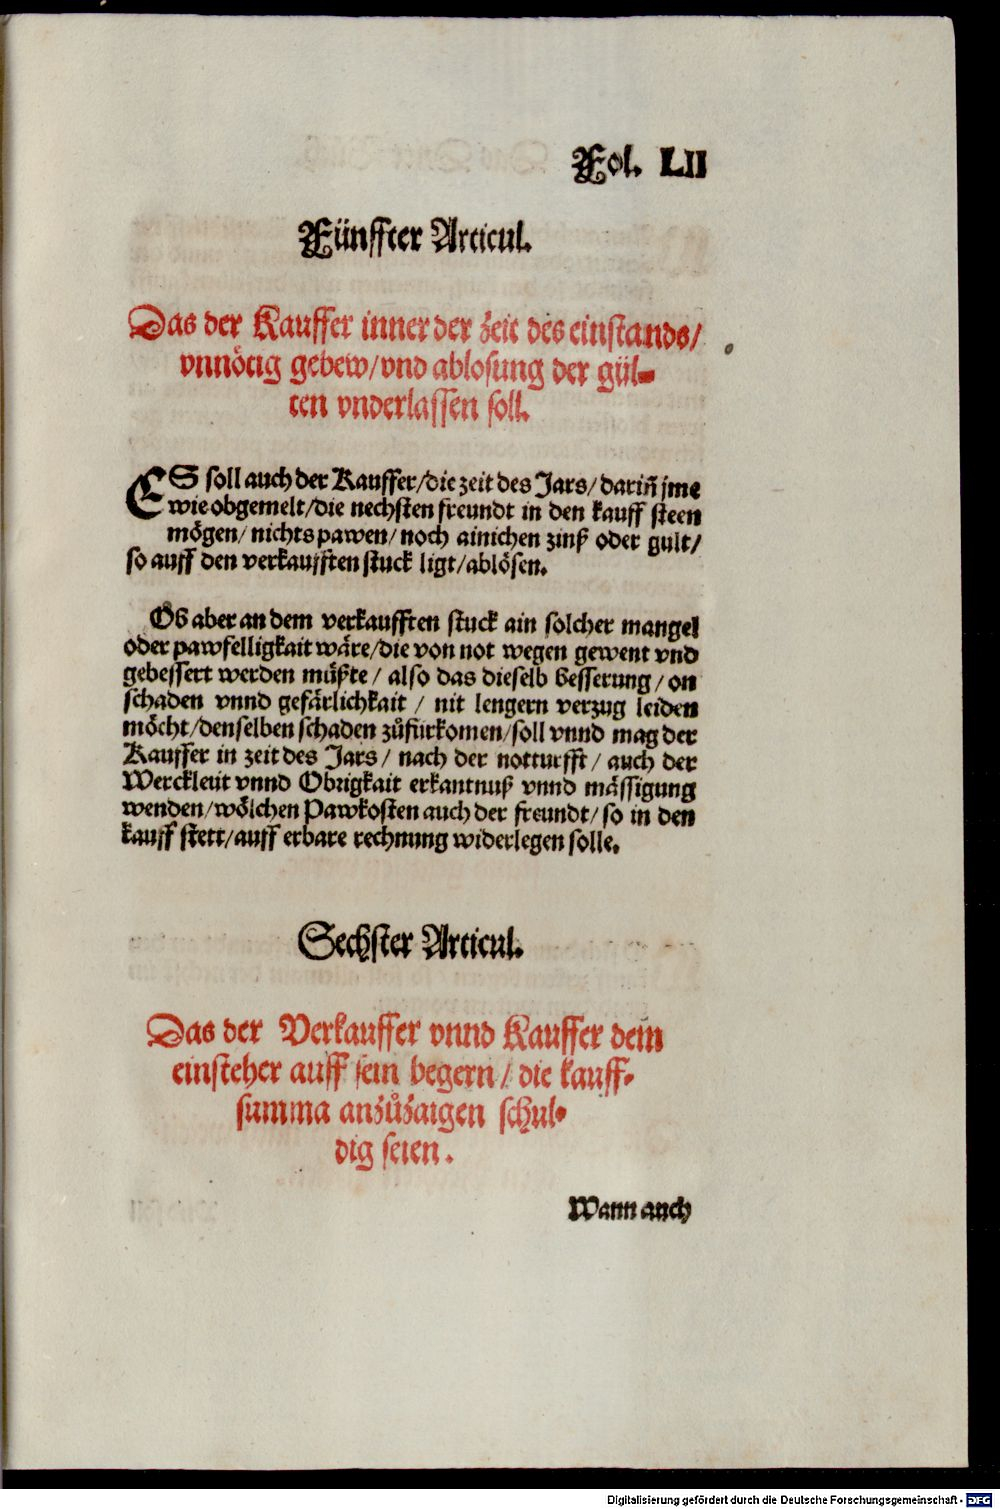 Fol. LII
Fünffter Articul.
Das der Kauffer inner der zeit des einstands/
vnnötig gebew/vnd ablosung der gül-
ten vnderlassen soll.
ES soll auch der Kauffer/die zeit des Jars/darin̄ jme
wie obgemelt/die nechsten freundt in den kauff steen
mögen/nichts pawen/noch ainichen zinß oder gult/
so auff den verkaufften stuck ligt/ablösen.
Ob aber an dem verkaufften stuck ain solcher mangel
oder pawfelligkait wäre/die von not wegen gewent vnd
gebessert werden müßte/also das dieselb besserung/on
schaden vnnd gefärlichkait/nit lengern verzug leiden
möcht/denselben schaden zůfürkomen/soll vnnd mag der
Kauffer in zeit des Jars/nach der notturfft/auch der
Werckleut vnnd Obrigkait erkantnuß vnnd mässigung
wenden/wölchen Pawkosten auch der freundt/so in den
kauff stett/auff erbare rechnung widerlegen solle.
Sechster Articul.
Das der Verkauffer vnnd Kauffer dem
einsteher auff sein begern/die kauff-
summa anzůzaigen schul-
dig seien.
Wann auch
Digitalisierung gefördert durch die Deutsche Forschungsgemeinschaft - DFG